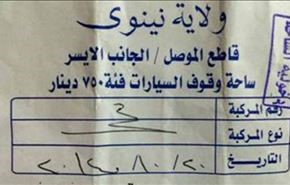 ولاية نينوى
قاطع الموصل / الجانب الايسر
ساحة وقوف السيارات فئة ٧٥٠ دينار
رقم المركبة
نوع المركبة
التاريخ ٢٠ / ١٠ /